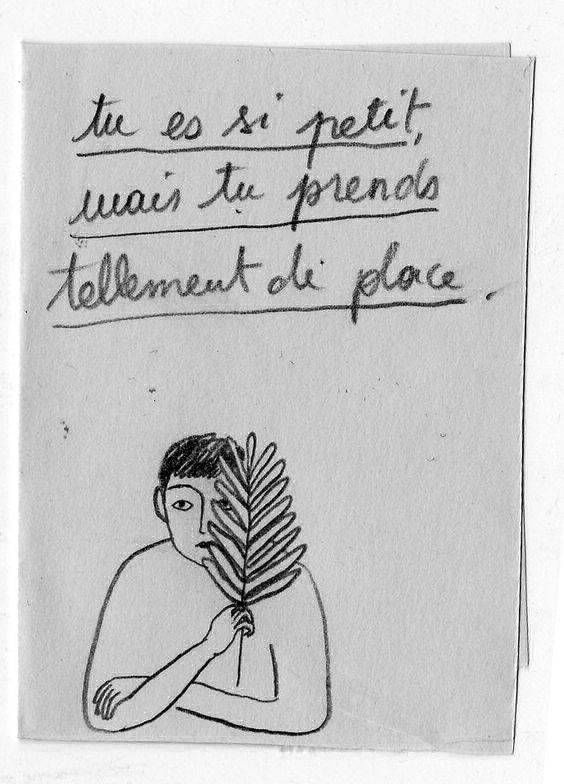 tu es si petit,
mais tu prends
tellement de place.